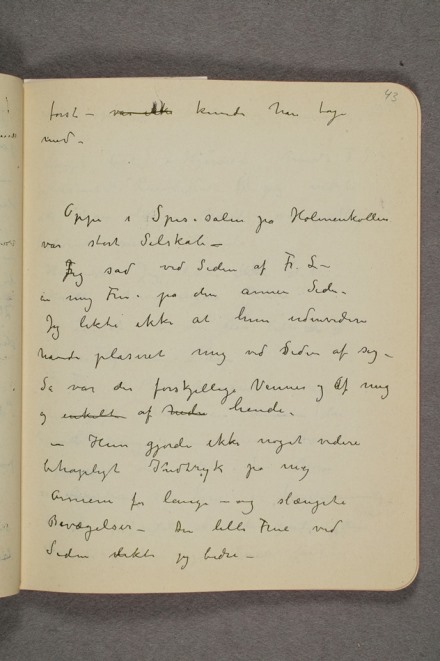 43
først – var ikke kunde han tage
med –
Oppe i Spisesalen paa Holmenkollen
var stort Selskab –
Jeg sad ved Siden af Fr. L –
en ung Frue paa den anden Side –
Jeg likte ikke at hun udenvidere
havde plaseret mig ved Siden af seg –
Så var der forskjellige Venner og af mig
og enkelte af hende –
– Hun gjorde ikke noget videre
behageligt Indtryk på mig
Armene for lange – og slængete
Bevægelser – Den lille Frue ved
Siden likte jeg bedre –